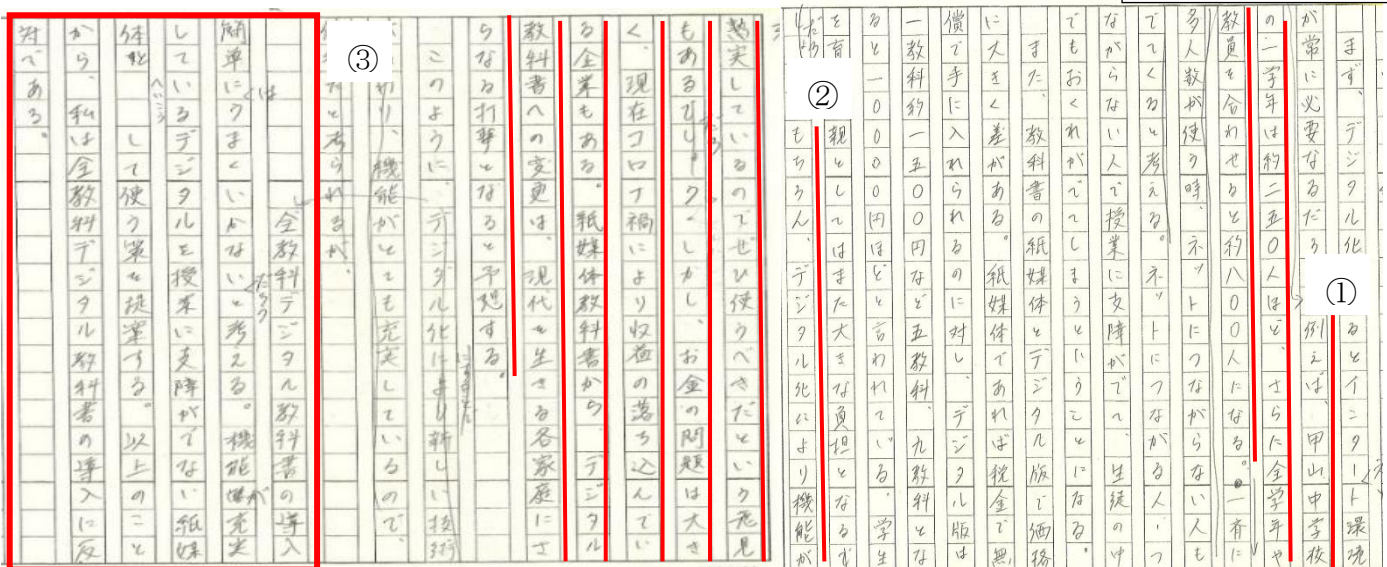 ①
まず、デジタル化るとインタート環境
が常に必要なるだろ 例えば、甲山中学校
の一学年は約二五〇人ほど、さらに全学年や
教員を合わせると約八〇〇人になる。一斉に
多人数が使う時、ネットにつながらない人も
でてくると考える。ネットにつながる人、つ
ながらない人で授業に支障がでて、生徒の中
でもおくれがでてしまうということになる。
また、教科書の紙媒体とデジタル版で価格
に大きく差がある。紙媒体であれば税金で無
償で手に入れられるのに対し、デジタル版は
一教科約一五〇〇円など五教科、九教科とな
ると一〇〇〇〇円ほどと言われている。学生
を育 親としてはまた大きな負担となるで
②
もちろん、デジタル化により機能が
充実しているのでぜひ使うべきだという意見
もあるでしょう。しかし、お金の問題は大き
く、現在コロナ禍により収益の落ち込んでい
る企業もある。紙媒体教科書から、デジタル
教科書への変更は、現代を生きる各家庭にさ
らなる打撃となると予想する。
このように、デジタル化により新しい技術
わり、機能がとても充実しているので、
と考られるが、
③
全教科デジタル教科書の導入
は
簡単にうまくいかないと考える。機能が充実
だろう
しているデジタルを授業に支障がでない紙媒
体と して使う策を提案する。以上のこと
へいこう
から、私は全教科デジタル教科書の導入に反
対である。